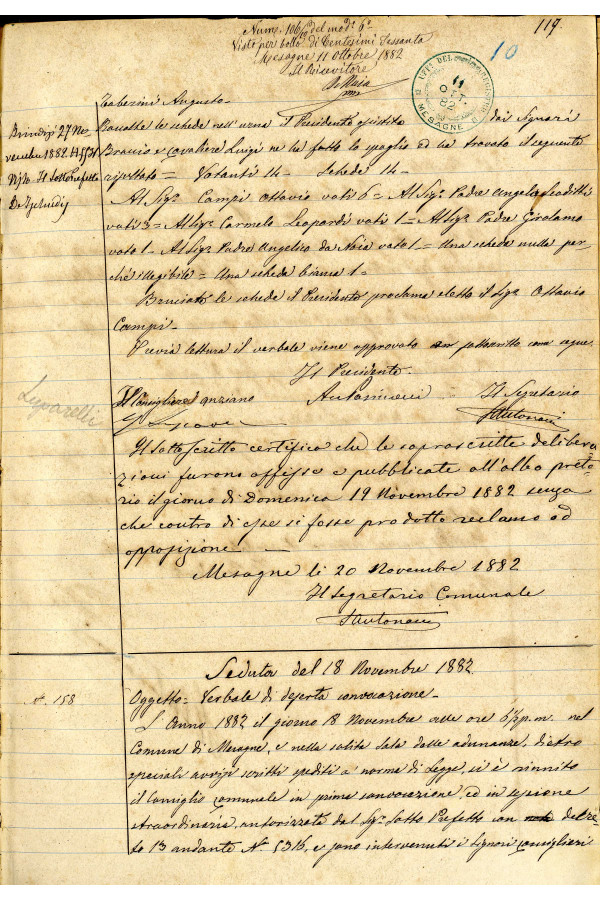 Num. 106 del mod. 6°
117
Visto per bollo di Centesimi Sessanta
10
Mesagne 11 Ottobre 1882
Il Ricevitore
UFF° DEL
11
OTT.
82
MESAGNE
Augusto-
Brindisi 27 No
vembre 1882 N.
Visto Il Sotto Prefetto
le schede nell'urna il Presidente assistito dai Signori
Braccio e Cavaliere Luigi ne ha fatto lo spoglio ed ha trovato il seguente
risultato = Votanti 14 - Schede 14 -
Al Sigr Campi Ottavio voti 6 = Al Sigr Padre Angelo
voti 3 = Al Sigr Carmelo Leopardi voti 1 = Al Sigr Padre Girolamo
voto 1 - Al Sigr Padre Angelico da Noia voto 1 = Una scheda nulla per-
chè illegibile = Una scheda bianca 1 -
Bruciate le schede il Presidente proclama eletto il Sigr Ottavio
Campi -
Previa lettura il verbale viene approvato e sottoscritto come segue
Il Presidente
Il Consigliere Anziano
Il Segretario
Luparelli
Il sottoscritto certifica che le soprascritte delibera
zioni furono affisse e pubblicate all'albo preto-
rio il giorno di Domenica 19 Novembre 1882 senza
che contro di esse si fosse prodotto reclamo od
opposizione -
Mesagne li 20 Novembre 1882
Il Segretario Comunale
Seduta del 18 Novembre 1882
N. 158
Oggetto = Verbale di deserta convocazione -
L'Anno 1882 il giorno 18 Novembre alle ore 6½ p.m. nel
Comune di Mesagne, e nella solita sala delle adunanze, dietro
speciali avvisi scritti spediti a norma di Legge, si è riunito
il Consiglio Comunale in prima convocazione, ed in sessione
straordinaria, autorizzata dal Sigr Sotto Prefetto con decre
to 13 andante N. 5316, e sono intervenuti i Signori Consiglieri